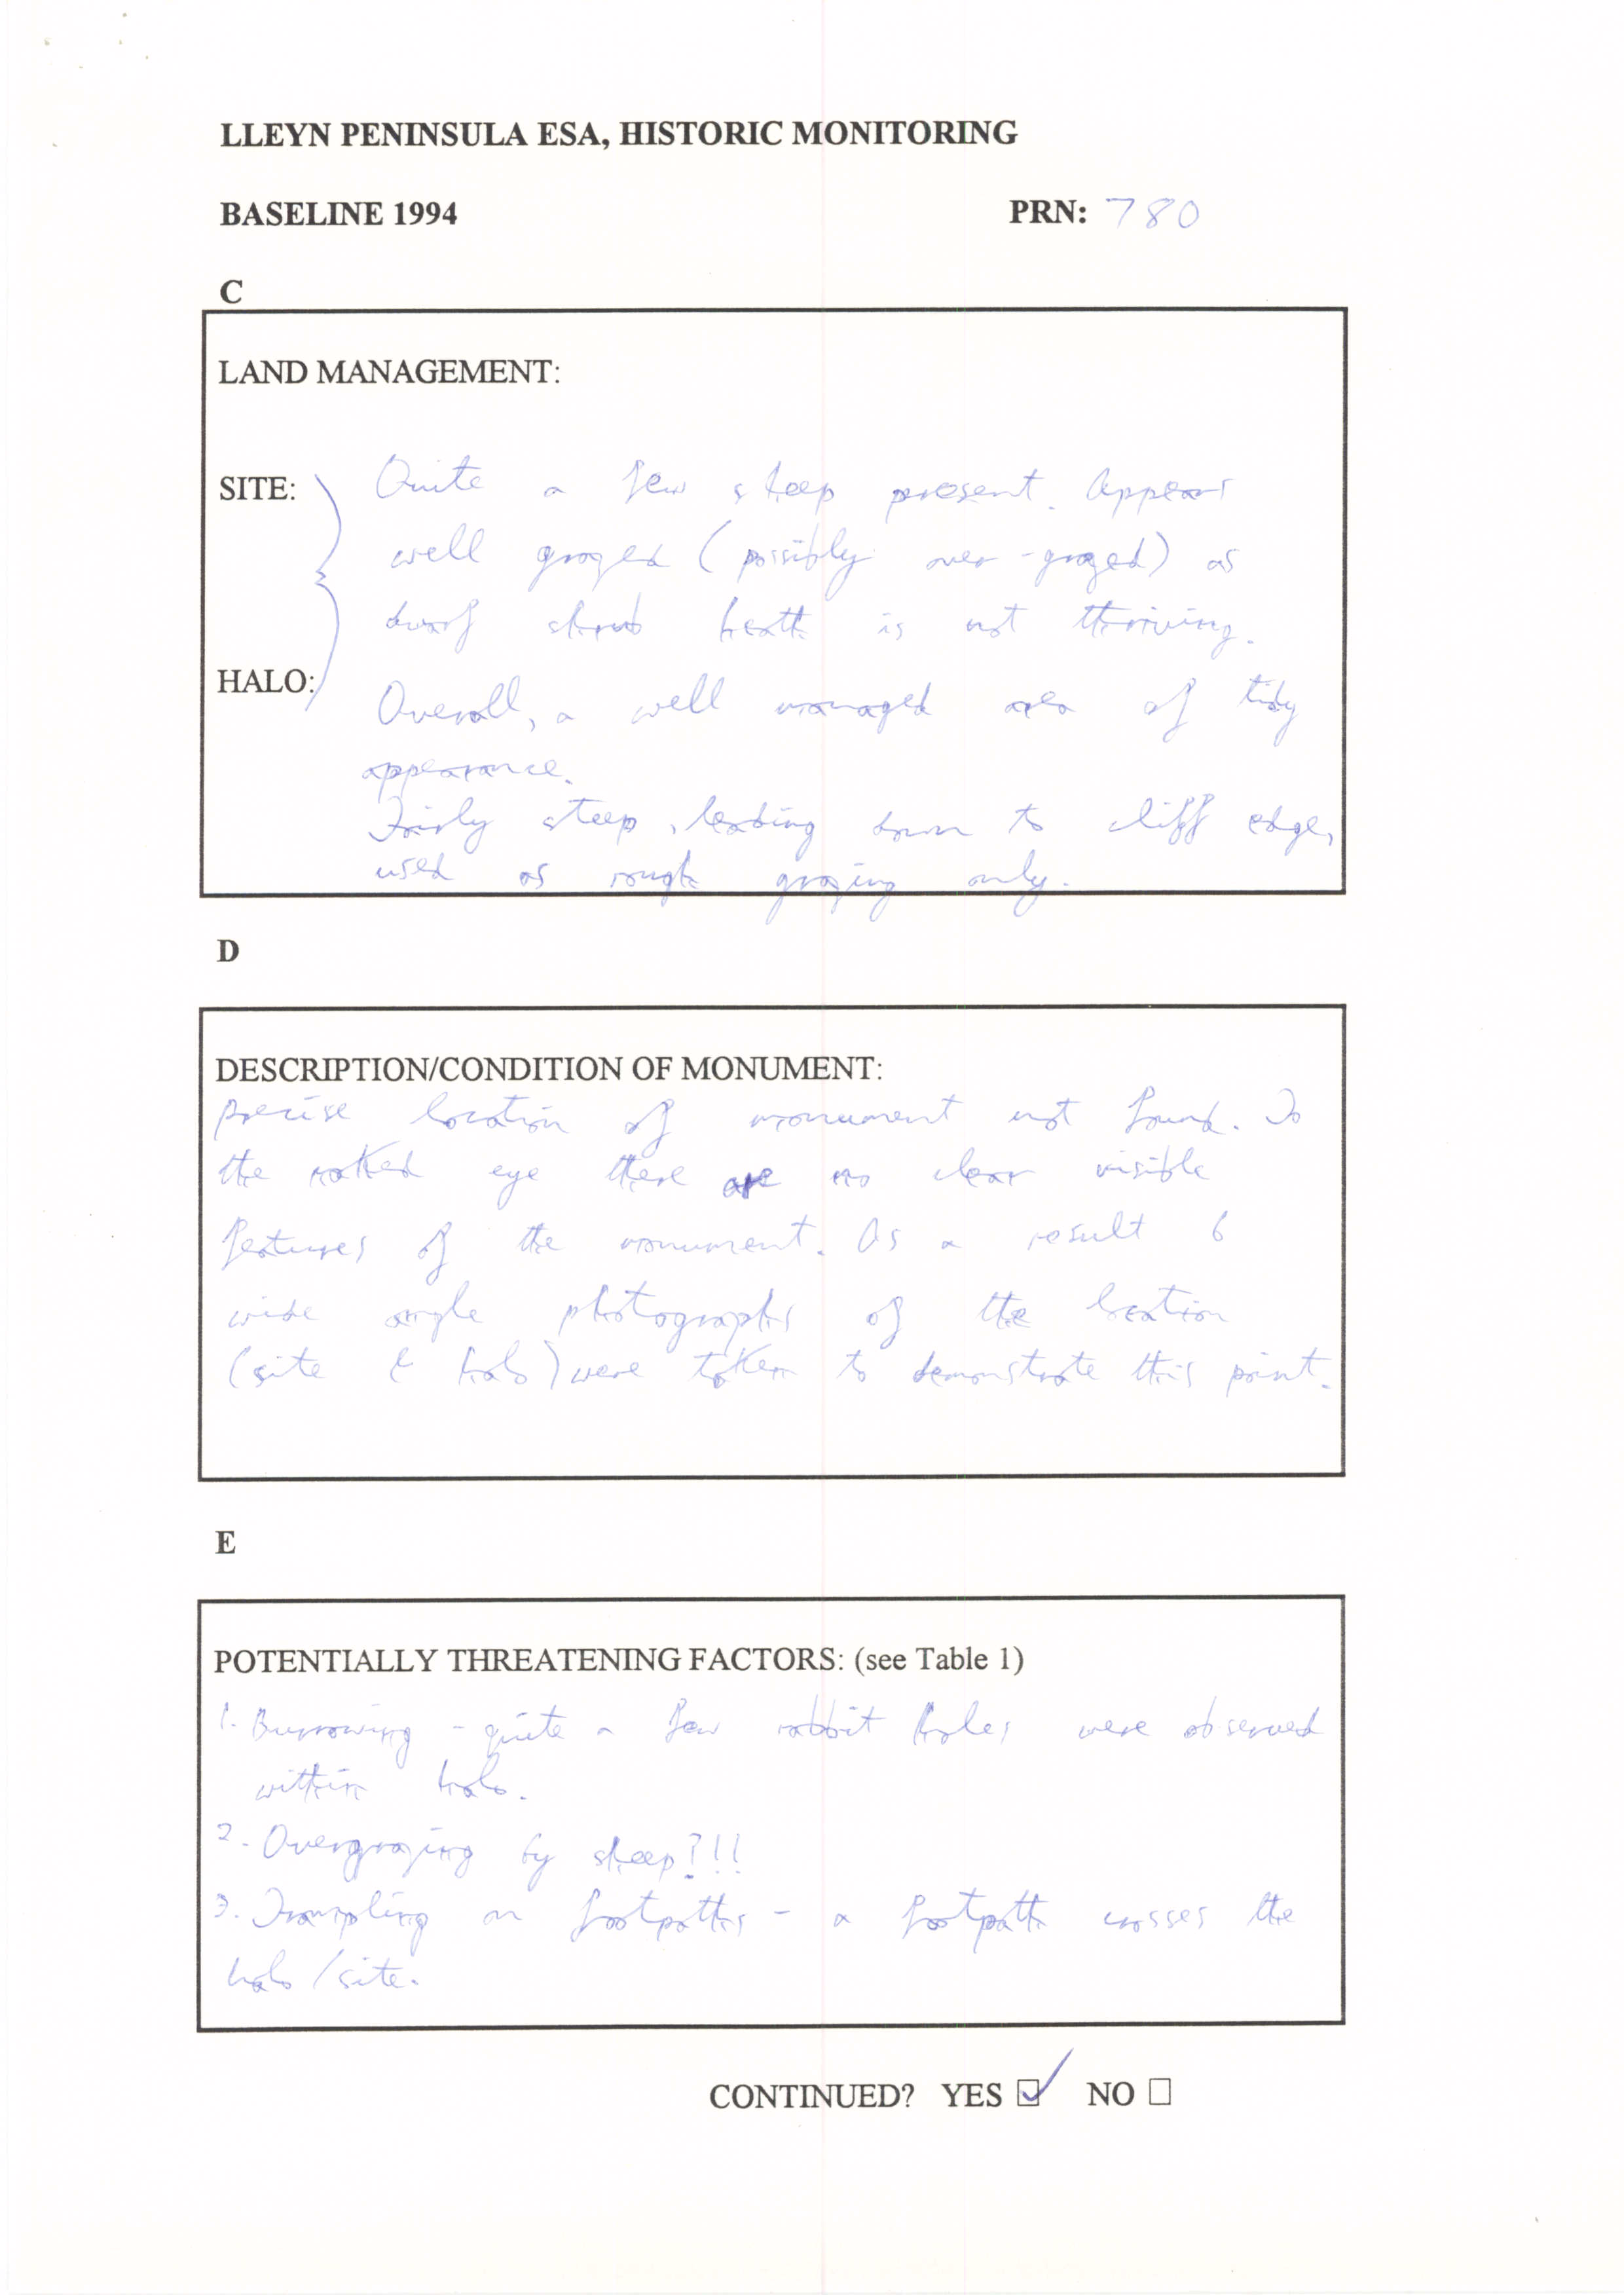 LLEYN PENINSULA ESA, HISTORIC MONITORING
BASELINE 1994 PRN: 780
C
LAND MANAGEMENT:
SITE: Quite a few sheep present. Appears
well grazed (possibly over-grazed) as
dwarf shrub heath is not thriving.
HALO: Overall, a well managed area of tidy
appearance.
Fairly steep, leading down to cliff edge,
used as rough grazing only.
D
DESCRIPTION/CONDITION OF MONUMENT:
Precise location of monument not found. To
the naked eye there are no clear visible
features of the monument. As a result 6
wide angle photographs of the location
(site & halo) were taken to demonstrate this point.
E
POTENTIALLY THREATENING FACTORS: (see Table 1)
1. Burrowing - quite a few rabbit holes were observed
within halo.
2. Overgrazing by sheep?!!!
3. Trampling on footpaths - a footpath crosses the
halo/site.
CONTINUED? YES ☑ NO ☐